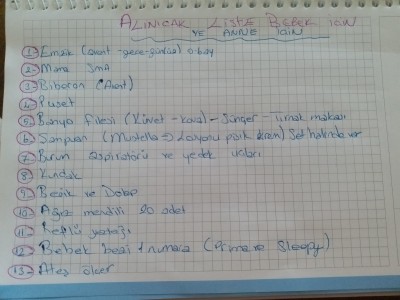 ALINICAK LİSTE BEBEK İÇİN
VE ANNE İÇİN
1- Emzik (avent - gece-gündüz) 0-6 ay
2- Mama Sma
3- Biberon (Avent)
4- Puset
5- Banyo filesi (Küvet - kova) - Sünger - Tırnak makası
6- Şampuan (Mustella => Losyonu pişik krem) Set halinde var
7- Burun aspiratörü ve yedek uçları
8- Kundak
9- Beşik ve Dolap
10- Ağız mendili 20 adet
11- yatağı
12- Bebek bezi 1 numara (Prima ve Sleepy)
13- Ateş ölçer